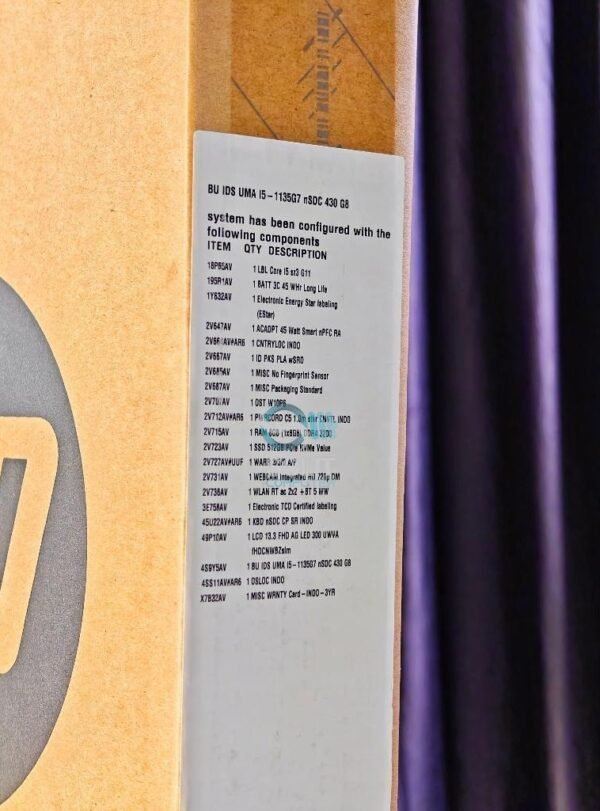 BU IDS UMA I5-1135G7 nSDC 430 G8
system has been configured with the
following components
ITEM QTY DESCRIPTION
18P85AV 1 LBL Core I5 sr3 G11
195R1AV 1 BATT 3C 45 WHr Long Life
1Y832AV 1 Electronic Energy Star labeling
(EStar)
2V647AV 1 ACADPT 45 Watt Smart nPFC RA
1 CNTRYLOC INDO
2V667AV 1 ID PKS PLA wSRO
2V685AV 1 MISC No Fingerprint Sensor
2V687AV 1 MISC Packaging Standard
1 OST W10P6
2V712AV#AR6 1 PWRCORD C5 1.0m INDO
2V715AV 1 RAM 8GB (1x8GB) DDR4 3200
2V723AV 1 SSD 512GB PCIe NVMe Value
2V727AV#UUF 1 WARR 3/3/1
2V731AV 1 WEBCAM Integrated 720p DM
2V736AV 1 WLAN RT ac 2x2 +BT 5 WW
3E756AV 1 Electronic TCO Certified labeling
45U22AV#AR6 1 KBD nSDC CP SR INDO
49P10AV 1 LCD 13.3 FHD AG LED 300 UWVA
fHDCNWBZslm
4S9Y5AV 1 BU IDS UMA I5-1135G7 nSDC 430 G8
4SS11AV#AR6 1 OSLOC INDO
X7B32AV 1 MISC WRNTY Card-INDO-3YR